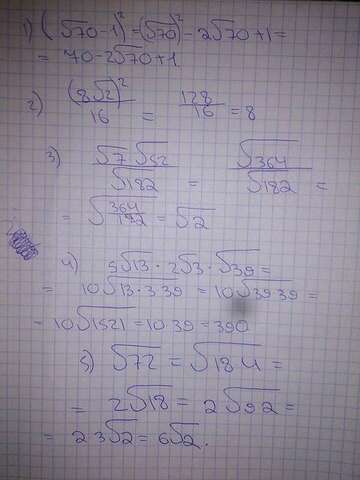 1) (√70-1)² = (√70)² - 2√70 + 1 =
= 70 - 2√70 + 1
2) (8√2)²/16 = 128/16 = 8
3) √7 √52/√182 = √364/√182 =
= √364/182 = √2
4) 5√13 · 2√3 · √39 =
= 10√13·3 39 = 10√39 39 =
= 10√1521 = 10 39 = 390
5) √72 = √18 4 =
= 2√18 = 2√9 2 =
= 2 3√2 = 6√2.